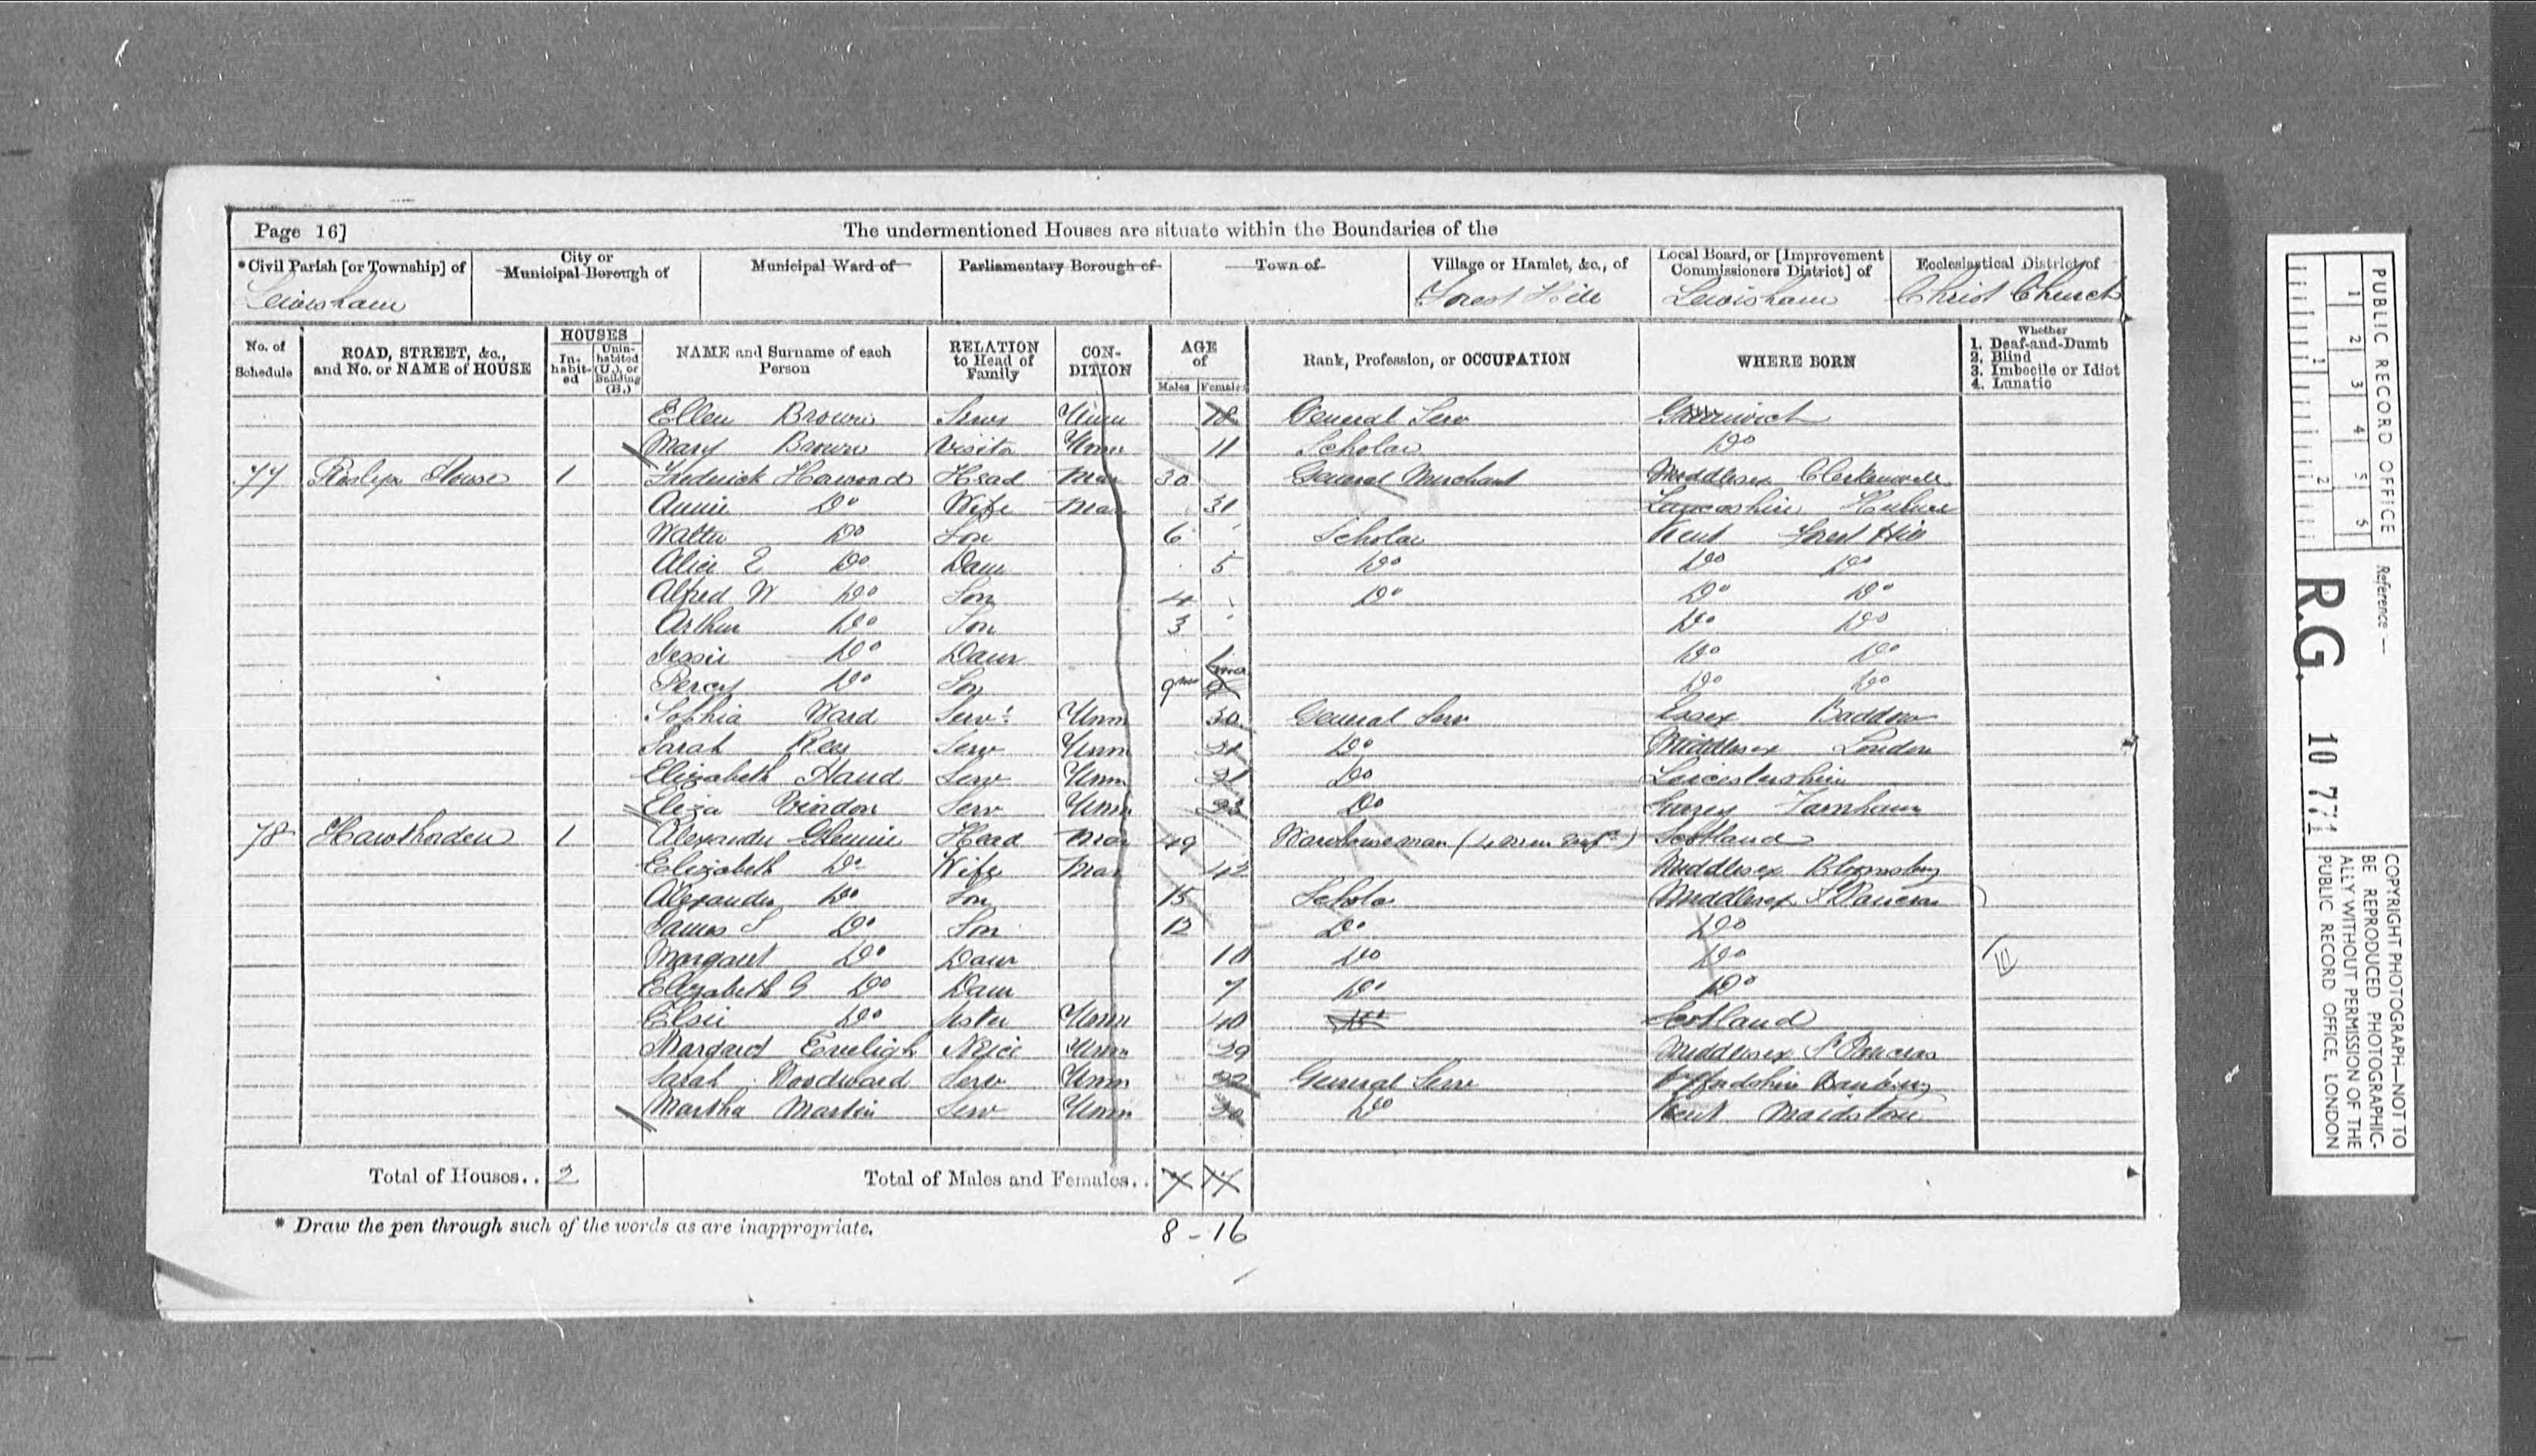 Page 16]
The undermentioned Houses are situate within the Boundaries of the
*Civil Parish [or Township] of
City or Municipal Borough of
Municipal Ward of
Parliamentary Borough of
Town of
Village or Hamlet, &c., of
Local Board, or [Improvement Commissioners District] of
Ecclesiastical District of
Lewisham
Forest Hill
Lewisham
Christ Church
No. of Schedule
ROAD, STREET, &c., and No. or NAME of HOUSE
HOUSES
In-habit-ed
Unin-habited (U.), or Building (B.)
NAME and Surname of each Person
RELATION to Head of Family
CON-DITION
AGE of
Males
Females
Rank, Profession, or OCCUPATION
WHERE BORN
Whether
1. Deaf-and-Dumb
2. Blind
3. Imbecile or Idiot
4. Lunatic
Ellen Brown Serv Unm 18 General Serv Greenwich
Mary Brown Visitor Unm 11 Scholar Do
77 House 1 Frederick Harwood Head Mar 30 General Merchant Middlesex Clerkenwell
Annie Do Wife Mar 31 Lancashire Hulme
Walter Do Son 6 Scholar Kent Forest Hill
Alice E Do Daur 5 Do Do Do
Alfred W Do Son 4 Do Do Do
Arthur Do Son 3 Do Do
Jessie Do Daur 1 Do Do
Percy Do Son 9mos Do Do
Sophia Ward Servt Unm 30 General Serv Essex Baddow
Sarah Serv Unm Do Middlesex London
Elizabeth Hand Serv Unm 21 Do Leicestershire
Eliza Serv Unm 23 Do Surrey Farnham
78 Hawthornden 1 Alexander Glennie Head Mar 49 Warehouseman (4 men Scotland
Elizabeth Do Wife Mar 42 Middlesex Bloomsbury
Alexander Do Son 15 Scholar Middlesex St Pancras
James S Do Son 12 Do Do
Margaret Do Daur 10 Do Do
Elizabeth G Do Daur 7 Do Do
Elsie Do Sister Unm 40 Do Scotland
Margaret Eveligh Niece Unm 29 Middlesex St Pancras
Sarah Woodward Serv Unm 22 General Serv Banbury
Martha Martin Serv Unm 20 Do Kent Maidstone
Total of Houses.. 2
Total of Males and Females..
* Draw the pen through such of the words as are inappropriate.
8 - 16
PUBLIC RECORD OFFICE
1 2 3 4 5 6
1 2
Reference —
R.G. 10 771
COPYRIGHT PHOTOGRAPH—NOT TO
BE REPRODUCED PHOTOGRAPHIC-
ALLY WITHOUT PERMISSION OF THE
PUBLIC RECORD OFFICE, LONDON